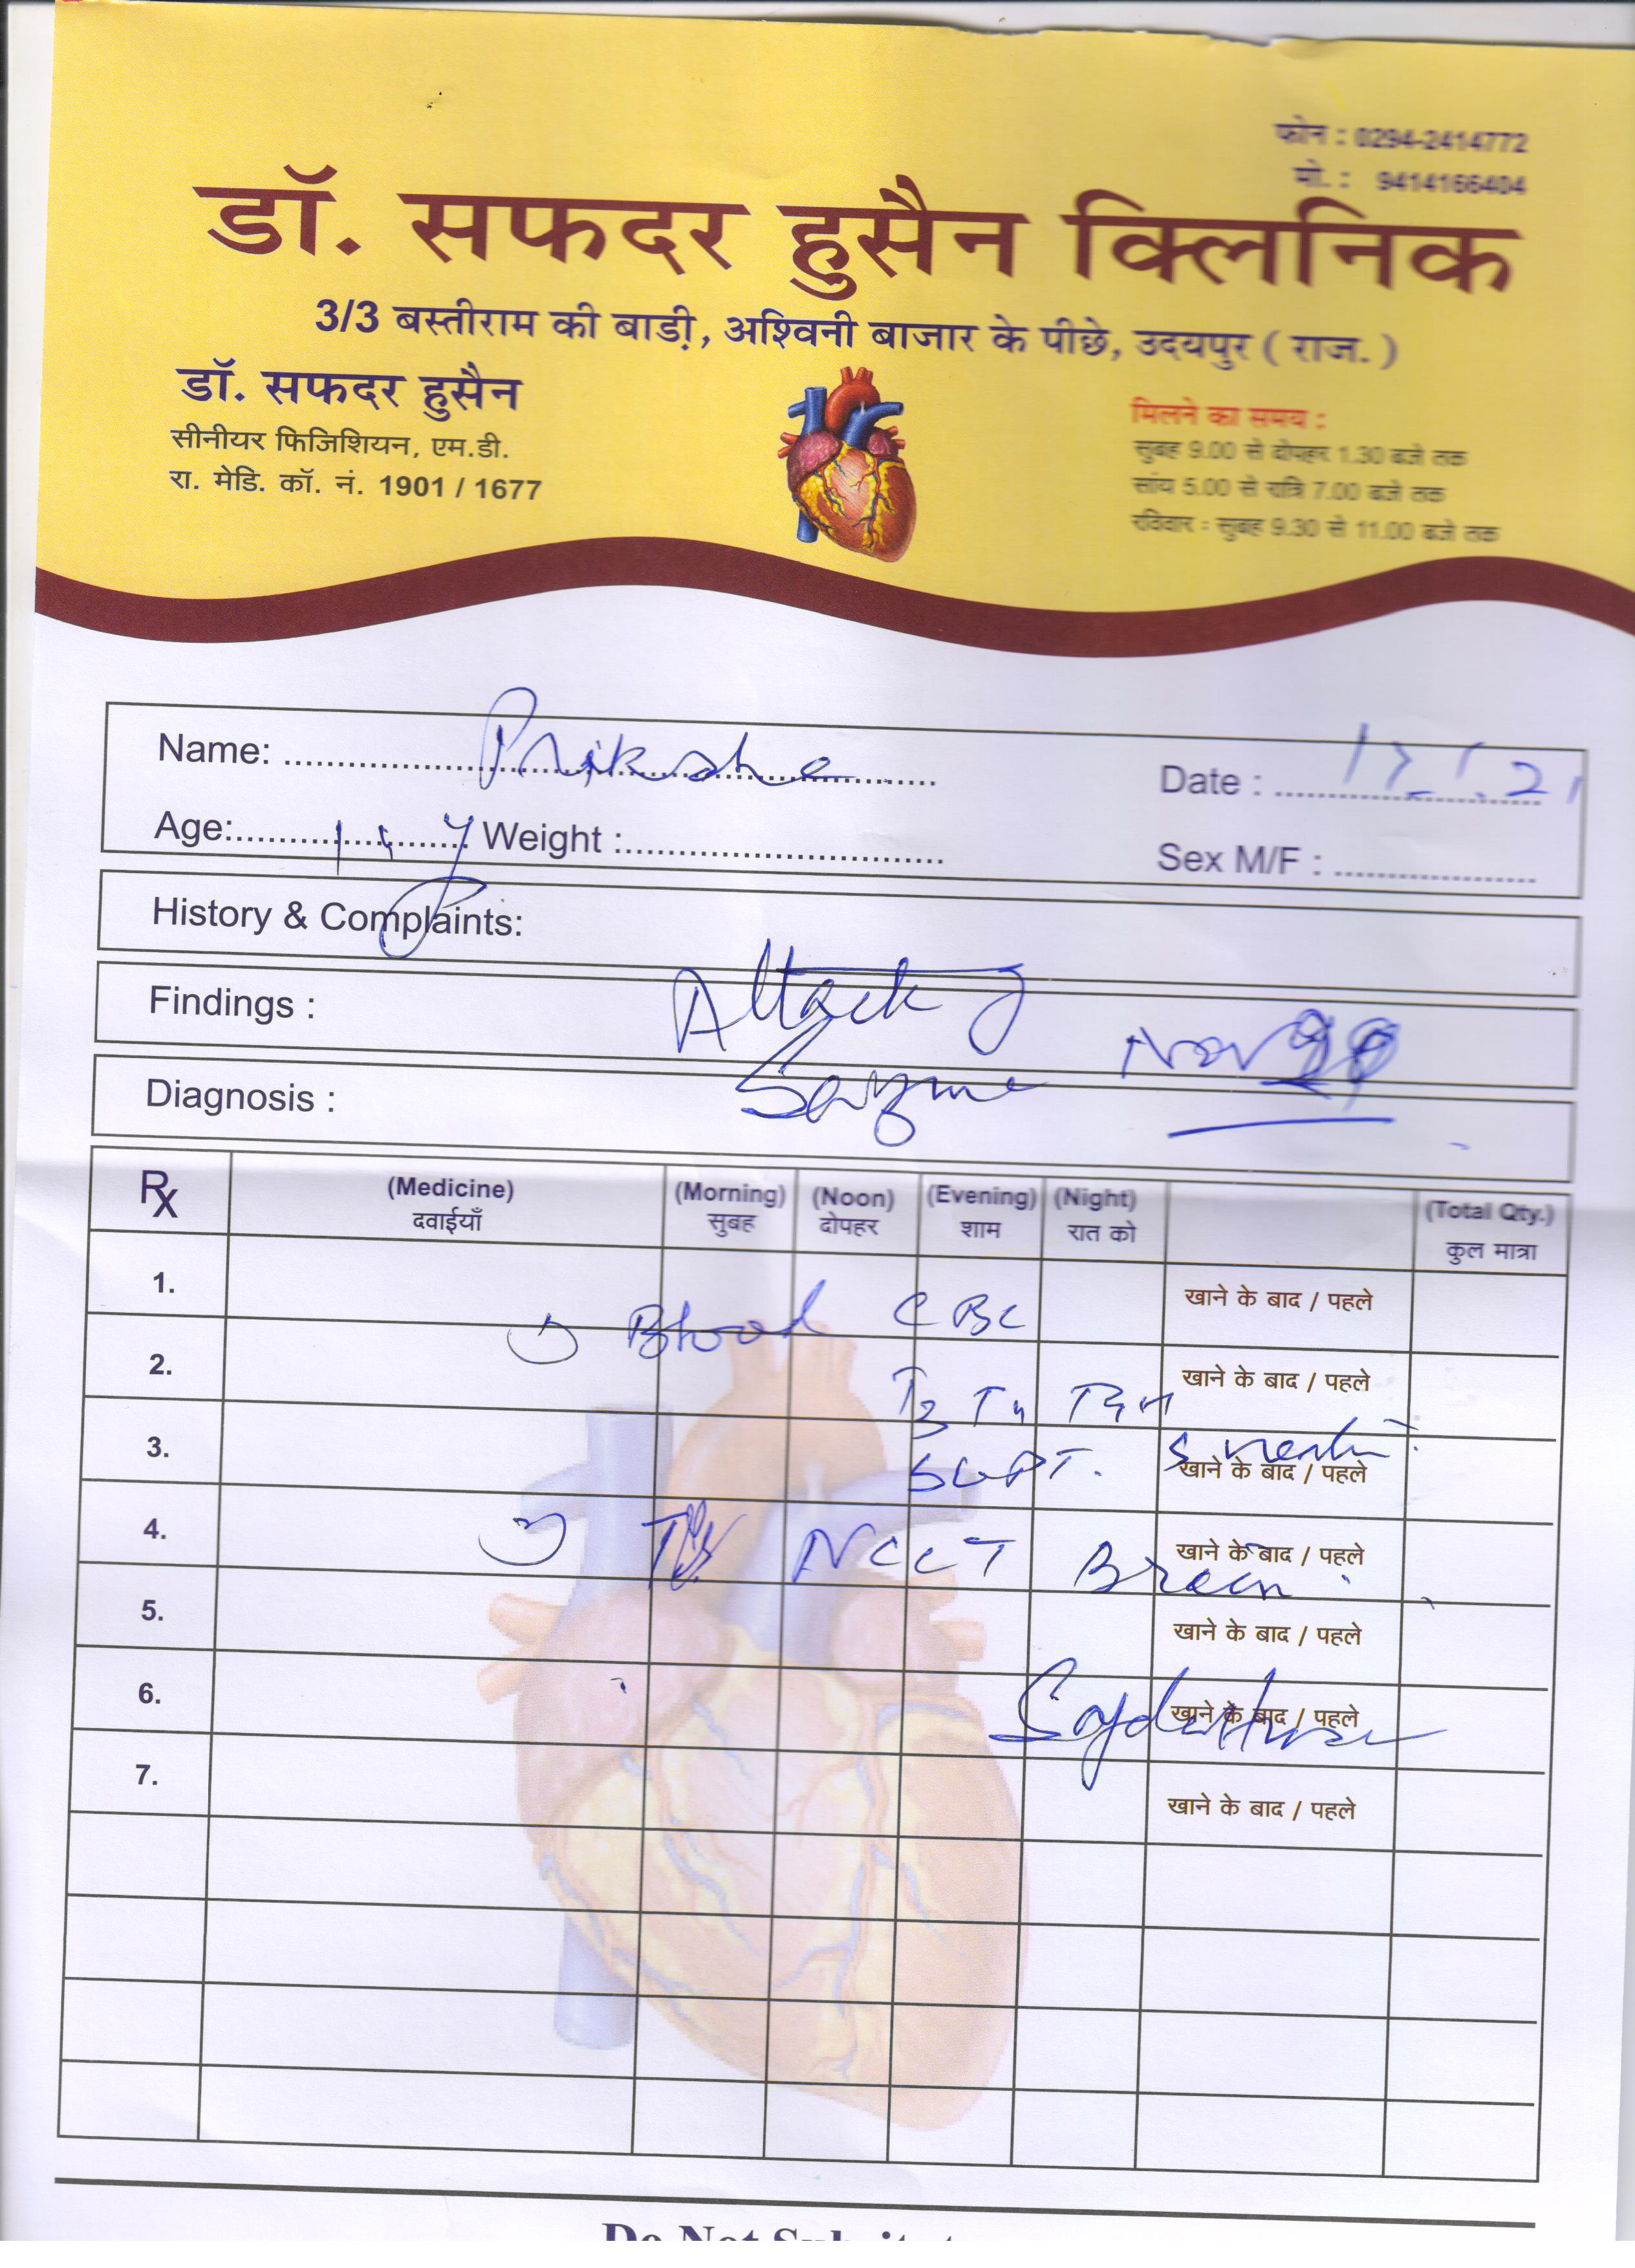 फोन : 0294-2414772
मो. : 9414166404
डॉ. सफदर हुसैन क्लिनिक
3/3 बस्तीराम की बाडी़, अश्विनी बाजार के पीछे, उदयपुर ( राज. )
डॉ. सफदर हुसैन
सीनीयर फिजिशियन, एम.डी.
रा. मेडि. कॉ. नं. 1901 / 1677
मिलने का समय :
सुबह 9.00 से दोपहर 1.30 बजे तक
सांय 5.00 से रात्रि 7.00 बजे तक
रविवार : सुबह 9.30 से 11.00 बजे तक
Name: Priksha
Date :
Age: Weight :
Sex M/F :
History & Complaints:
Findings : Attack Nov
Diagnosis :
Rx (Medicine) (Morning) (Noon) (Evening) (Night) (Total Qty.)
दवाईयाँ सुबह दोपहर शाम रात को कुल मात्रा
1. खाने के बाद / पहले
Blood CBC
2. खाने के बाद / पहले
T3 T4 TSH
3. खाने के बाद / पहले
SGPT.
4. खाने के बाद / पहले
NCCT Brain
5. खाने के बाद / पहले
6. खाने के बाद / पहले
7. खाने के बाद / पहले
Do Not